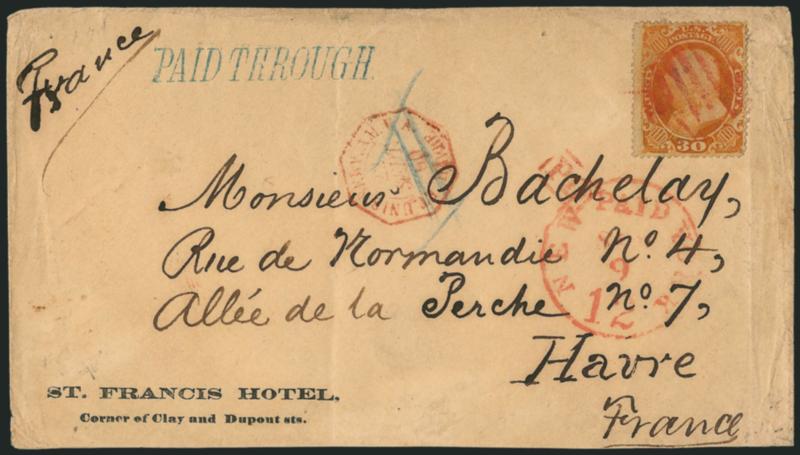 France
PAID THROUGH.
U.S. POSTAGE
THIRTY CENTS
30
NEW PAID YORK
9
12
Monsieur Bachelay,
Rue de Normandie No. 4,
Allée de la Perche No. 7,
Havre
France
ST. FRANCIS HOTEL,
Corner of Clay and Dupont sts.